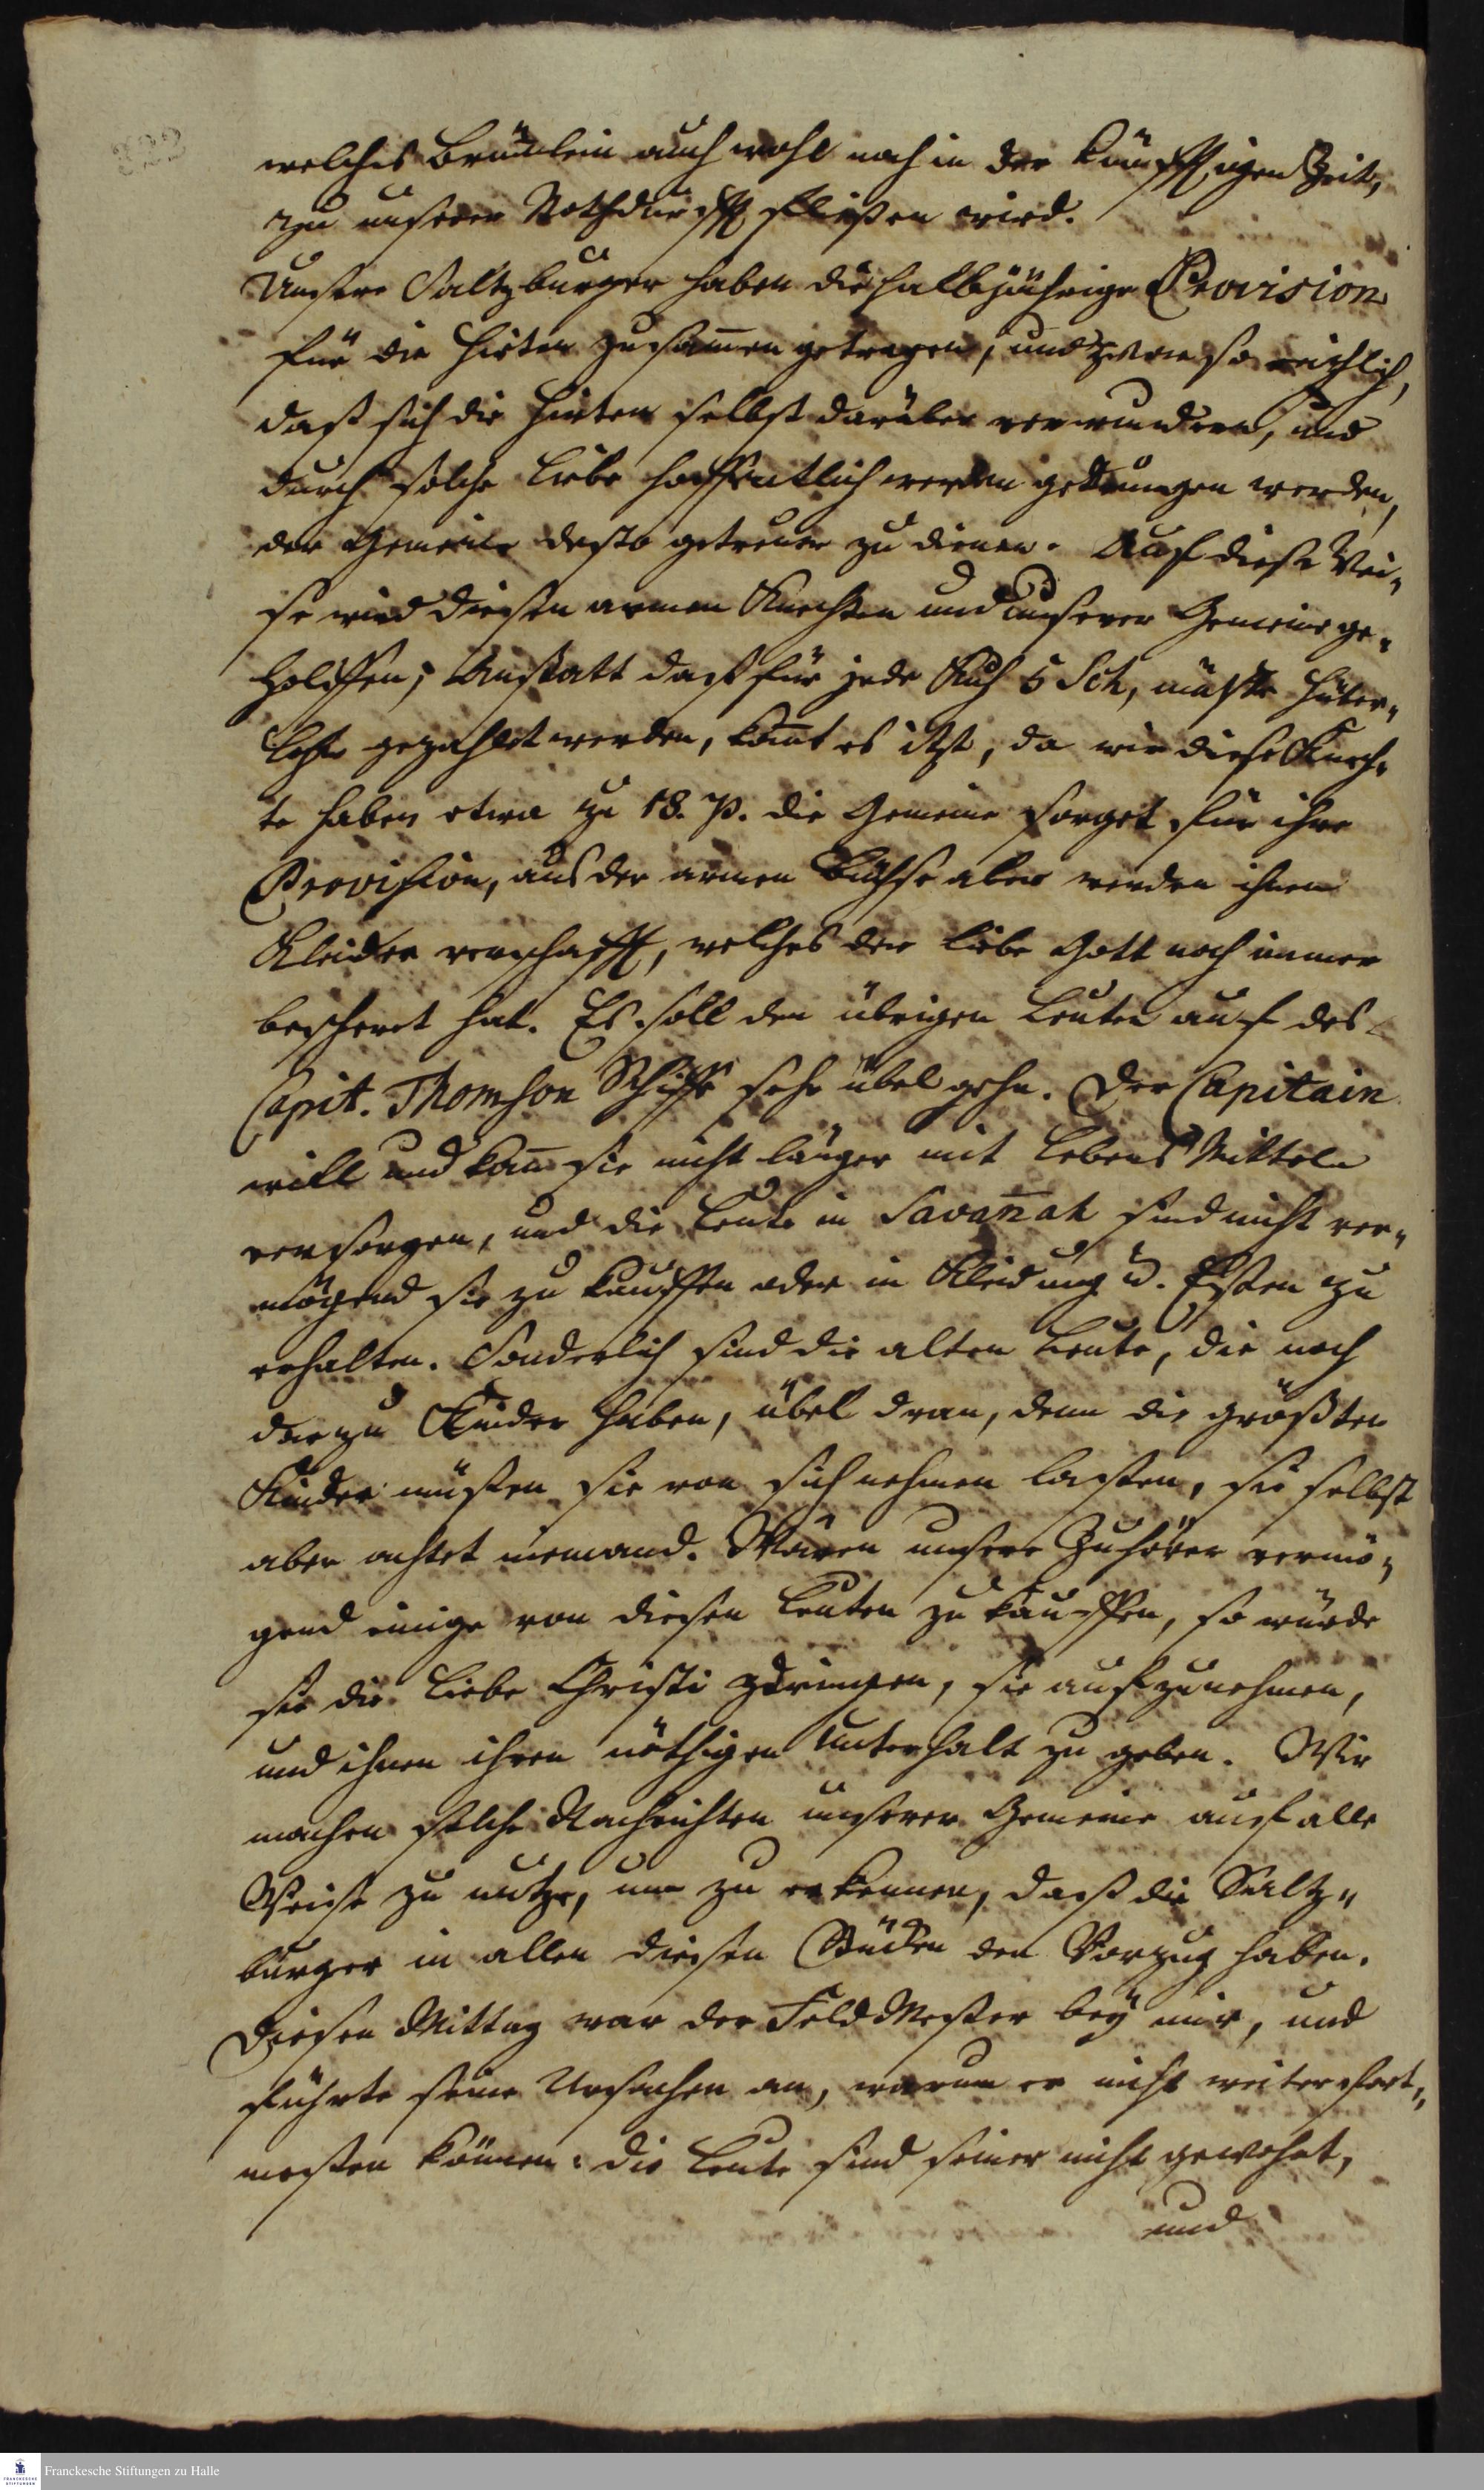 322
welches Brünnlein auch wohl noch in der künfftigen Zeit,
zu unserer Nothdurfft fließen wird.
Unsere Saltzburger haben die halbjährige Provision
für die Hirten zusam̅en getragen, und zwar so reichlich,
daß sich die Hirten selbst darüber verwundern, und
durch solche Liebe hoffentlich werden gedrungen werden,
der Gemeine desto getreuer zu dienen. Auf diese Wei-
se wird diesen armen Knechten und unserer Gemeine ge-
holffen; Anstatt daß für jede Kuh 5 Sch, müste Hüter-
lohn gezahlet werden, kom̅t es itzt, da wir diese Knech-
te haben etwa zu 18. p. die Gemeine sorget für ihre
Provision, aus der armen Büchse aber werden ihnen
Kleider verschafft, welches der liebe Gott noch immer
bescheret hat. Es soll den übrigen Leuten auf des
Capit. Thomson Schiffe sehr übel gehn. Der Capitain
will und kan̅ sie nicht länger mit Lebens Mitteln
versorgen, und die Leute in Savan̅ah sind nicht ver-
mögend sie zu kauffen oder in Kleidung u. Eßen zu
erhalten. Sonderlich sind die alten Leute, die noch
darzu Kinder haben, übel dran, denn die größten
Kinder müßen sie von sich nehmen laßen, sie selbst
aber achtet niemand. Wären unsere Zuhörer vermö-
gend einige von diesen Leuten zu kauffen, so würde
sie die Liebe Christi dringen, sie aufzunehmen,
und ihnen ihren nöthigen Unterhalt zu geben. Wir
machen solche Nachrichten unserer Gemeine auf alle
Weise zu nutze, um zu erkennen, daß die Saltz-
burger in allen diesen Stücken den Vorzug haben.
Diesen Mittag war der FeldMeßer bey mir, und
führte seine Ursachen an, warum er nicht weiter fort-
meßen können: die Leute sind seiner nicht gewohnt,
und
Franckesche Stiftungen zu Halle
FRANCKESCHE STIFTUNGEN